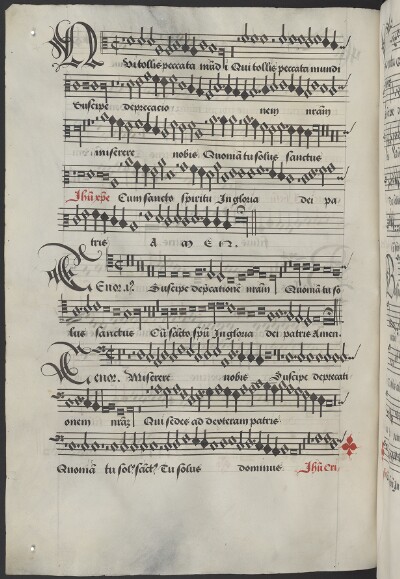 Qui tollis peccata mũdi Qui tollis peccata mundi
Suscipe deprecacio nem nrãm
miserere nobis Quoniã tu solus sanctus
Jhũ xpe Cum sancto spiritu In gloria dei pa
tris A M E N.
Tenor. Suscipe dep̃cationẽ nrãm Quoniã tu so
lus sanctus Cũ sãcto spũ In gloria dei patris Amen.
Tenor. Miserere nobis Suscipe deprecati
onem nrãz Qui sedes ad dexteram patris
Quoniã tu sol⁹ sãct⁹ Tu solus dominus Jhũ cri